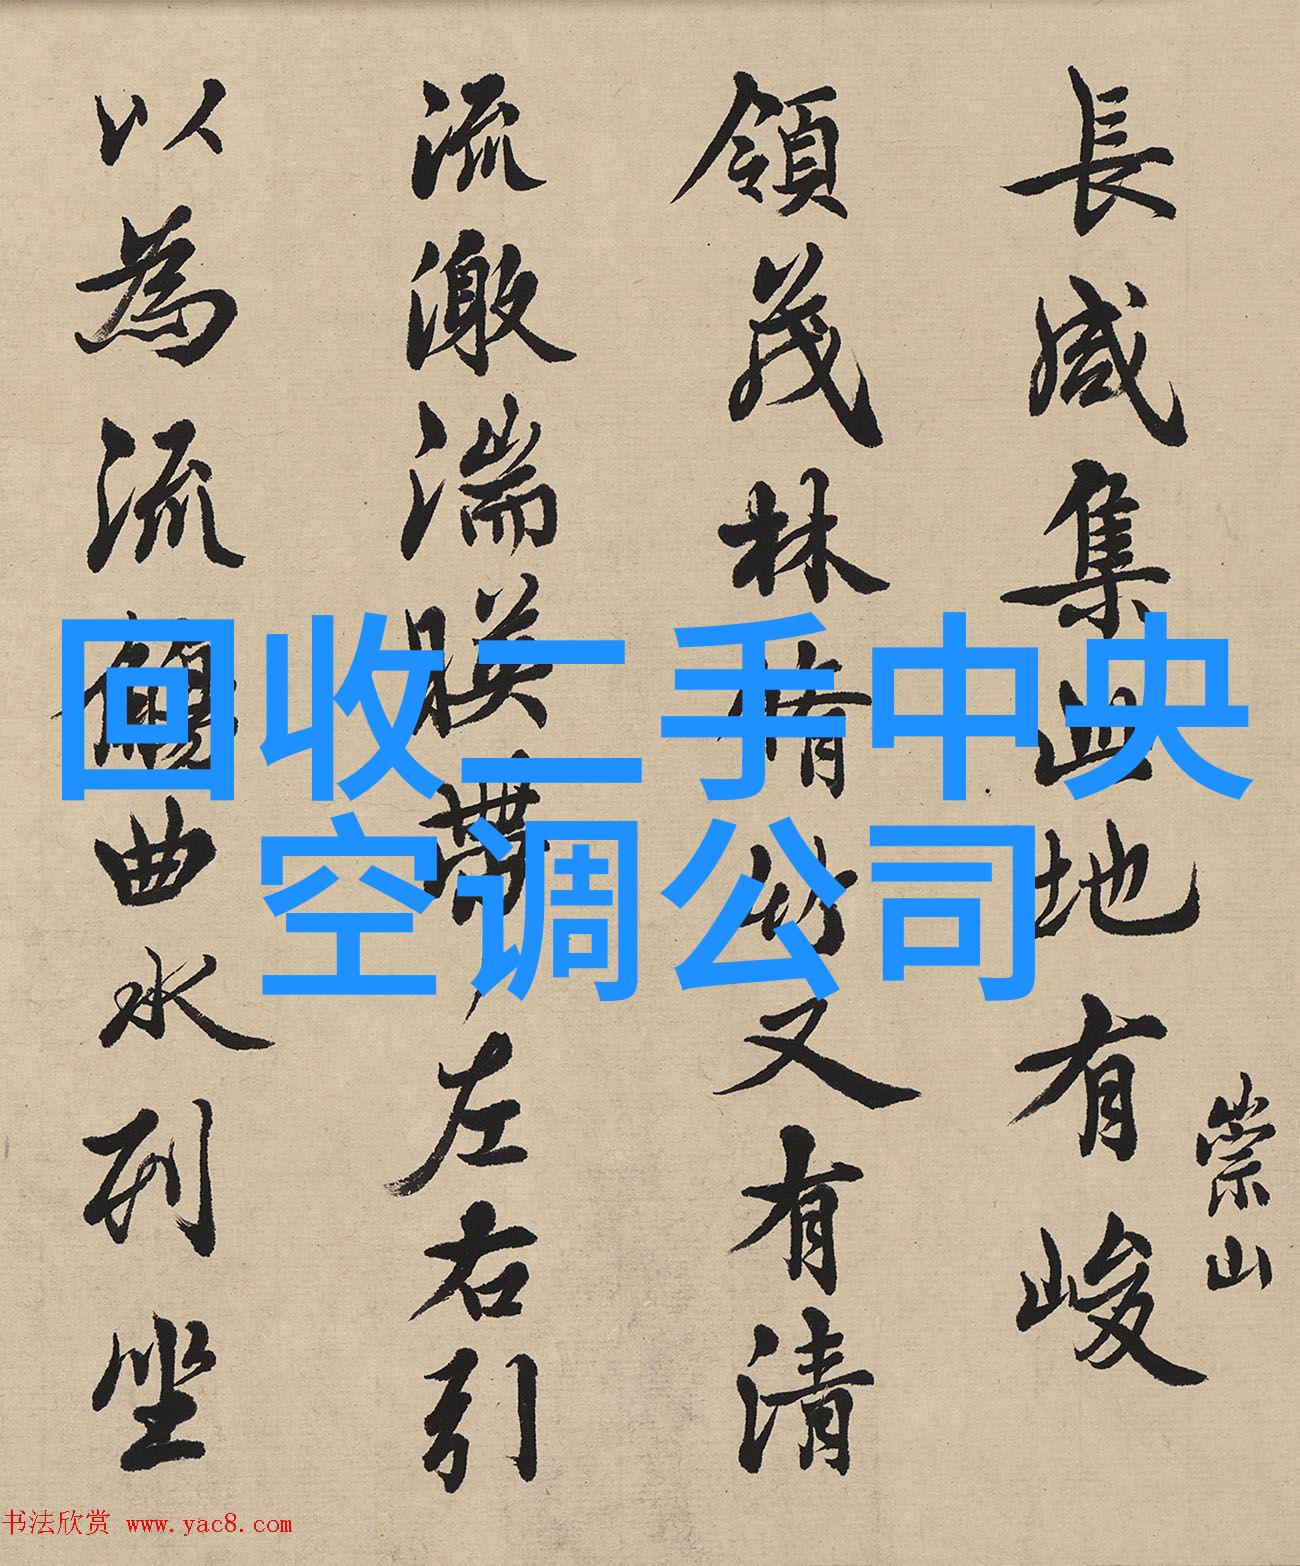 長咸集此地有峻
崇山
領茂林脩竹又有清
流激湍暎帶左右引
以為流觴曲水列坐
回收二手中央
空调公司
书法欣赏 www.yac8.com